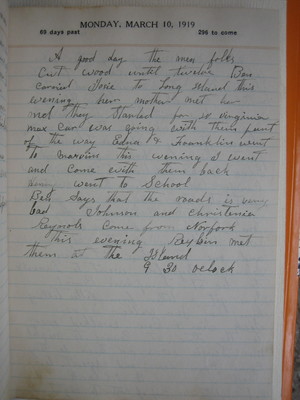 MONDAY, MARCH 10, 1919
69 days past
296 to come
A good day the men folks
Cut wood until twelve Ben
carried Josie to Long Island this
evening her mother met her
not they Started for so Virginia
mae Can was going with them part
of the way Edna & Franklin went
to this evening I went
and Come with them back
went to School
Beth Says that the roads is very
bad Johnson and Christenia
Reynolds Come from Norfork
This evening met
them at the Island
9 30 oclock